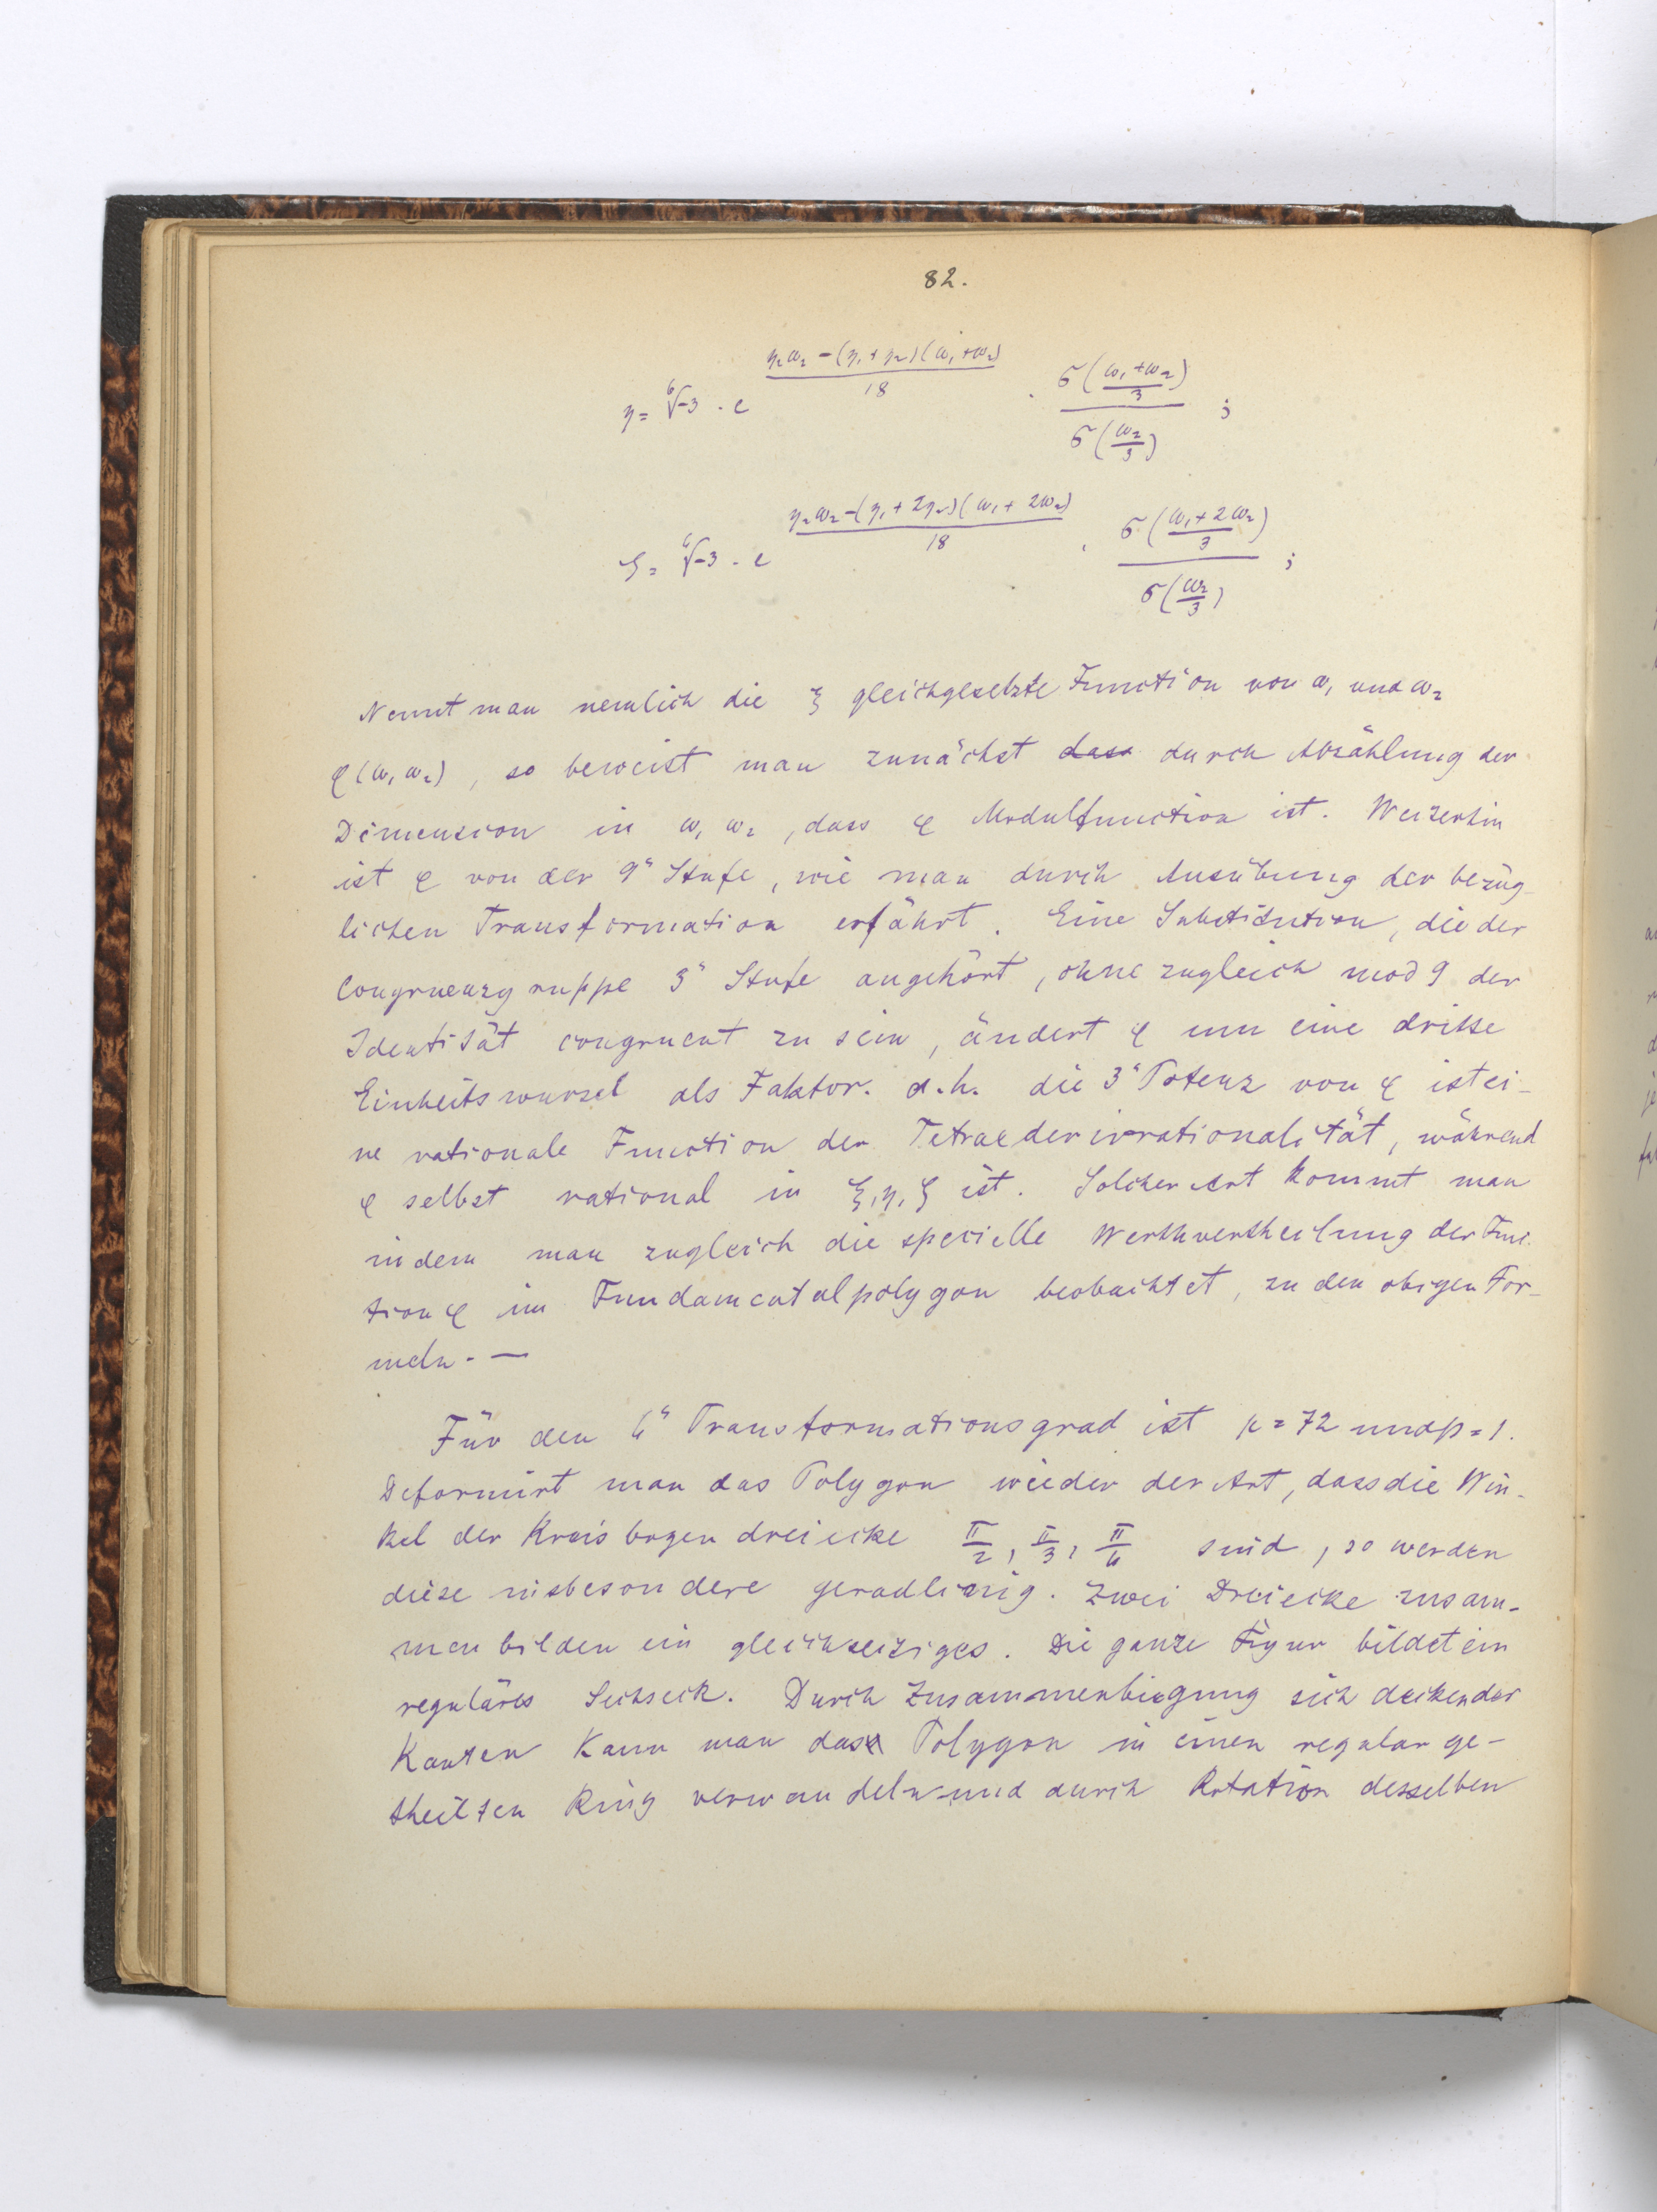 82.
η = ⁶√-3 · e^{(η₂ω₂ - (η₁+η₂)(ω₁+ω₂))/18} · σ((ω₁+ω₂)/3) / σ(ω₂/3) ;
ζ = ⁶√-3 · e^{(η₂ω₂ - (η₁+2η₂)(ω₁+2ω₂))/18} · σ((ω₁+2ω₂)/3) / σ(ω₂/3) ;
Nennt man nemlich die ξ gleichgesetzte Function von ω₁ und ω₂
φ(ω₁ω₂), so beweist man zunächst dass durch Abzählung der
Dimension in ω₁ ω₂, dass φ Modulfunction ist. Weiterhin
ist φ von der 9" Stufe, wie man durch Ausübung der bezüg-
lichen Transformation erfährt. Eine Substitution, die der
Congruenzgruppe 3" Stufe angehört, ohne zugleich mod 9 der
Identität congruent zu sein, ändert φ um eine dritte
Einheitswurzel als Faktor. d.h. die 3" Potenz von φ ist ei-
ne rationale Function der Tetraederirrationalität, während
φ selbst rational in ξ, η, ζ ist. Solcher Art kommt man
indem man zugleich die specielle Werthvertheilung der Func-
tion φ im Fundamentalpolygon beobachtet, zu den obigen For-
meln. —
Für den 6" Transformationsgrad ist μ = 72 und p = 1.
Deformirt man das Polygon wieder der Art, dass die Win-
kel der Kreisbogendreiecke π/2, π/3, π/6 sind, so werden
diese insbesondere geradlinig. Zwei Dreiecke zusam-
men bilden ein gleichseitiges. Die ganze Figur bildet ein
reguläres Sechseck. Durch Zusammenbiegung sich deckender
Kanten kann man das Polygon in einen regular ge-
theilten Ring verwandeln und durch Rotation desselben